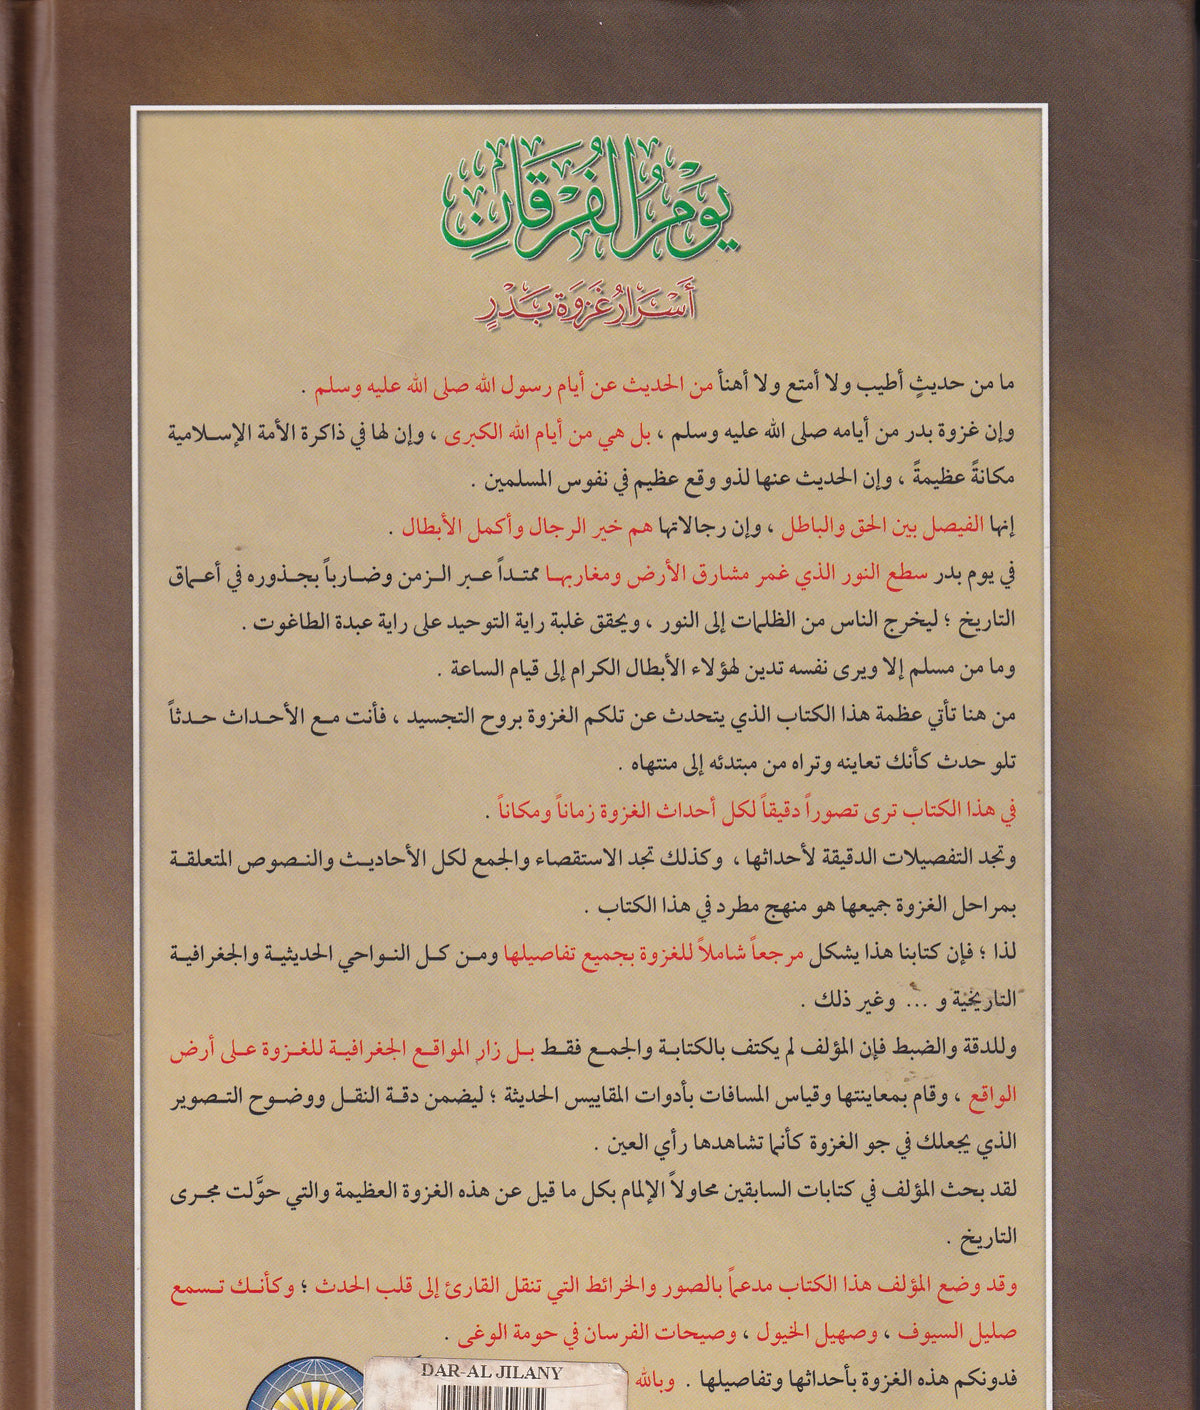 يَوْمُ الفُرْقَانِ
أَسْرَارُ غَزْوَةِ بَدْرٍ
ما من حديثٍ أطيب ولا أمتع ولا أهنأ من الحديث عن أيام رسول الله صلى الله عليه وسلم .
وإن غزوة بدر من أيامه صلى الله عليه وسلم ، بل هي من أيام الله الكبرى ، وإن لها في ذاكرة الأمة الإسلامية
مكانةً عظيمةً ، وإن الحديث عنها لذو وقع عظيم في نفوس المسلمين .
إنها الفيصل بين الحق والباطل ، وإن رجالاتها هم خير الرجال وأكمل الأبطال .
في يوم بدر سطع النور الذي غمر مشارق الأرض ومغاربها ممتداً عبر الزمن وضارباً بجذوره في أعماق
التاريخ ؛ ليخرج الناس من الظلمات إلى النور ، ويحقق غلبة راية التوحيد على راية عبدة الطاغوت .
وما من مسلم إلا ويرى نفسه تدين لهؤلاء الأبطال الكرام إلى قيام الساعة .
من هنا تأتي عظمة هذا الكتاب الذي يتحدث عن تلكم الغزوة بروح التجسيد ، فأنت مع الأحداث حدثاً
تلو حدث كأنك تعاينه وتراه من مبتدئه إلى منتهاه .
في هذا الكتاب ترى تصوراً دقيقاً لكل أحداث الغزوة زماناً ومكاناً .
وتجد التفصيلات الدقيقة لأحداثها ، وكذلك تجد الاستقصاء والجمع لكل الأحاديث والنصوص المتعلقة
بمراحل الغزوة جميعها هو منهج مطرد في هذا الكتاب .
لذا ؛ فإن كتابنا هذا يشكل مرجعاً شاملاً للغزوة بجميع تفاصيلها ومن كل النواحي الحديثية والجغرافية
التاريخية و ... وغير ذلك .
وللدقة والضبط فإن المؤلف لم يكتف بالكتابة والجمع فقط بل زار المواقع الجغرافية للغزوة على أرض
الواقع ، وقام بمعاينتها وقياس المسافات بأدوات المقاييس الحديثة ؛ ليضمن دقة النقل ووضوح التصوير
الذي يجعلك في جو الغزوة كأنما تشاهدها رأي العين .
لقد بحث المؤلف في كتابات السابقين محاولاً الإلمام بكل ما قيل عن هذه الغزوة العظيمة والتي حوَّلت مجرى
التاريخ .
وقد وضع المؤلف هذا الكتاب مدعماً بالصور والخرائط التي تنقل القارئ إلى قلب الحدث ؛ وكأنك تسمع
صليل السيوف ، وصهيل الخيول ، وصيحات الفرسان في حومة الوغى .
فدونكم هذه الغزوة بأحداثها وتفاصيلها . وبالله
DAR-AL JILANY